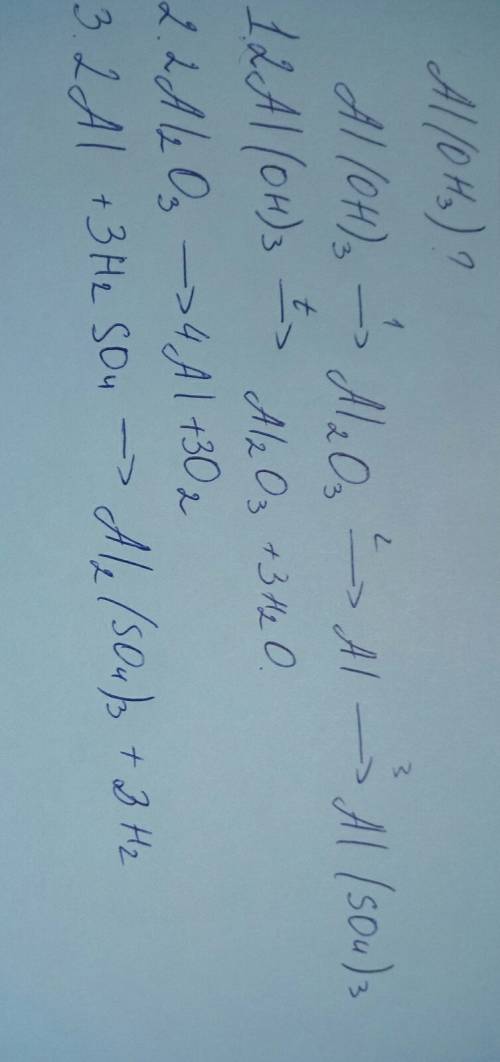 Al(OH₃)?
Al(OH)₃ —1→ Al₂O₃ —2→ Al —3→ Al(SO₄)₃
1. 2Al(OH)₃ —t→ Al₂O₃ + 3H₂O.
2. 2Al₂O₃ → 4Al + 3O₂
3. 2Al + 3H₂SO₄ → Al₂(SO₄)₃ + 3H₂